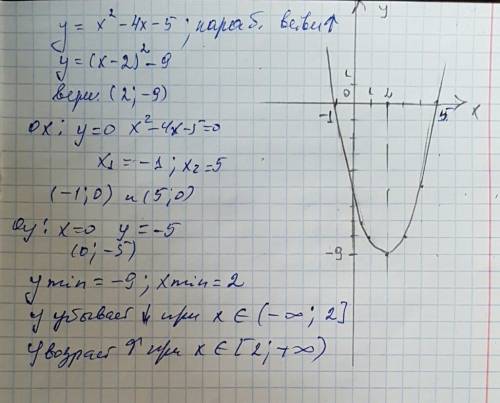 y = x² - 4x - 5 ; параб. ветви ↑
y = (x - 2)² - 9
верш. (2; -9)
ox: y = 0 x² - 4x - 5 = 0
x₁ = -1 ; x₂ = 5
(-1; 0) и (5; 0)
Oy: x = 0 y = -5
(0; -5)
y min = -9 ; x min = 2
y убывает ↓ при x ∈ (-∞; 2]
y возраст ↑ при x ∈ [2; +∞)
y
1
0 1 2
-1 5 x
-9